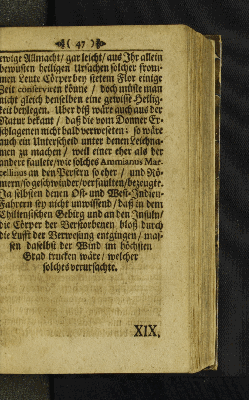 ( 47 )
ewige Allmacht / gar leicht / aus Ihr allein
bewusten heiligen Ursachen solcher from-
men Leute Cörper bey stetem Flor einige
Zeit conserviren könne / doch müste man
nicht gleich denselben eine gewisse Heilig-
keit beylegen. Uber diß wäre auch aus der
Natur bekant / daß die vom Donner Er-
schlagenen nicht bald verweseten; so wäre
auch ein Unterscheid unter denen Leichna-
men zu machen / weil einer ehe als der
andere faulete / wie solches Ammianus Mar-
cellinus an den Persern so eher / und Rö-
mern / so geschwinder / verfaulten / bezeugte.
Ja selbsten denen Ost- und West-Indien-
Fahrern sey nicht unwissend / daß in dem
Chiliensischen Gebirg und an den Insuln /
die Cörper der Verstorbenen bloß durch
die Lufft der Verwesung entgingen / mas-
sen daselbst der Wind im höchsten
Grad trucken wäre / welcher
solches verursachte.
XIX.